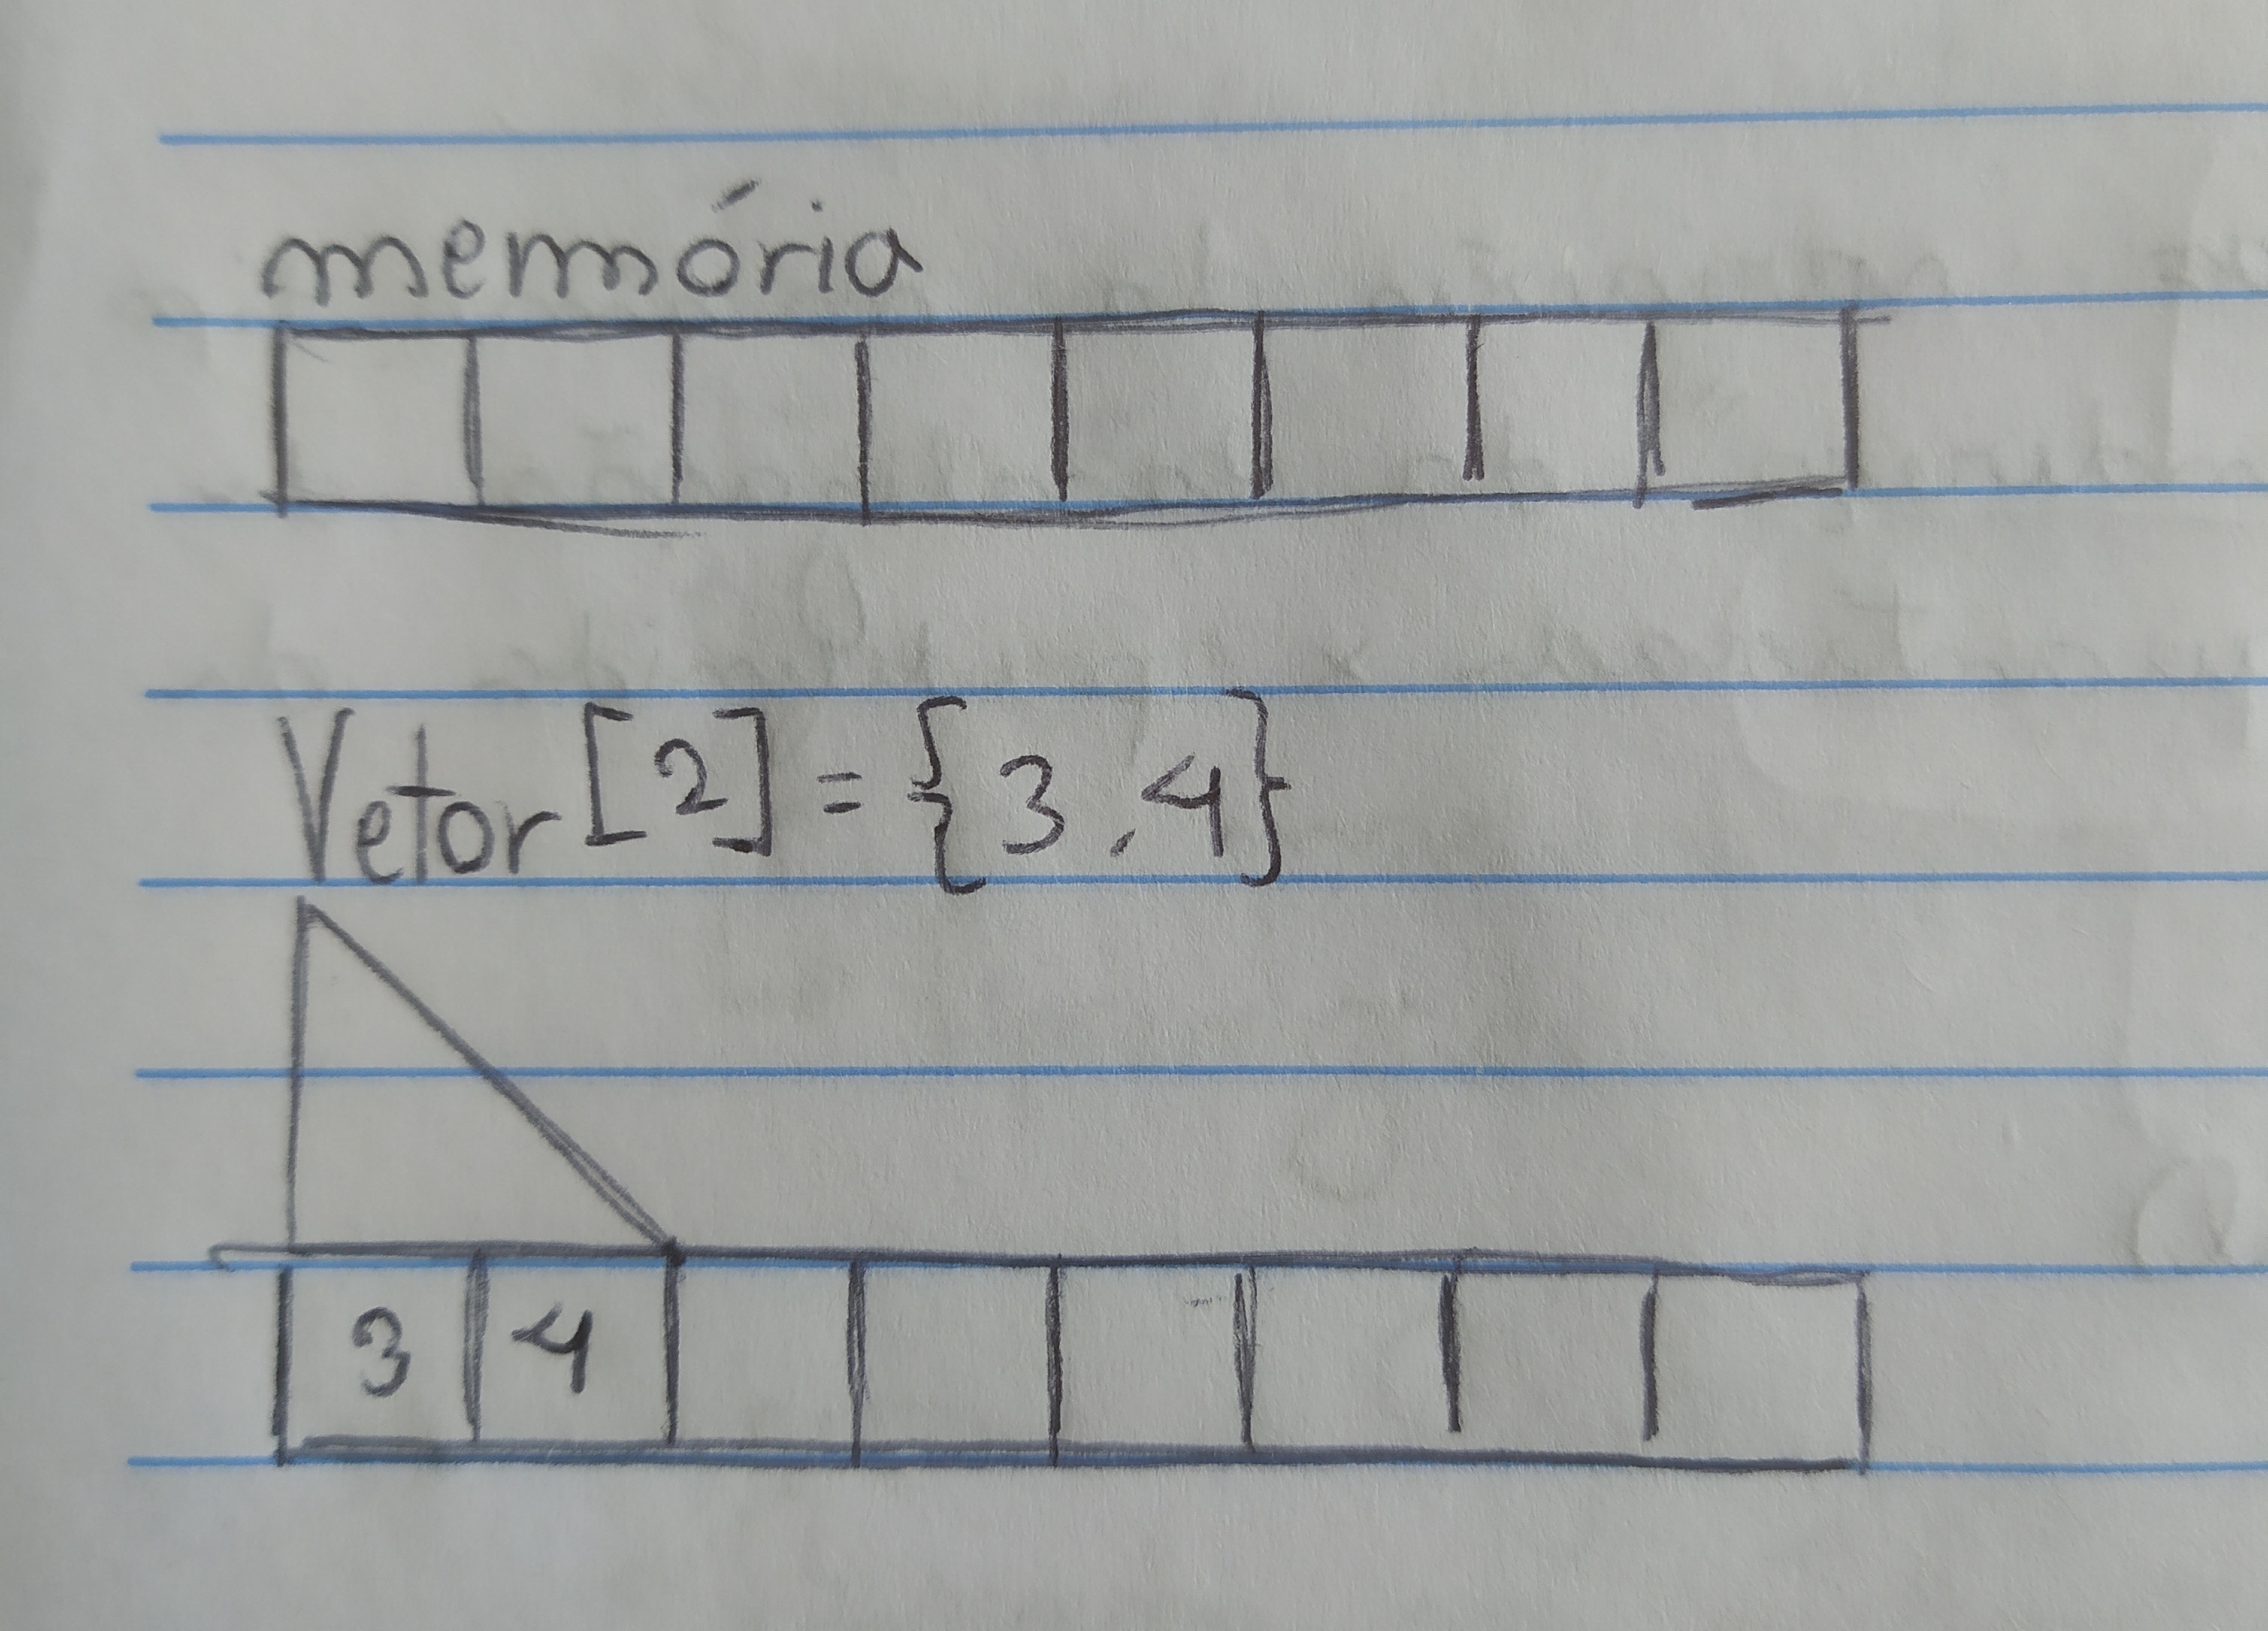 memória
Vetor[2] = {3,4}
3 4